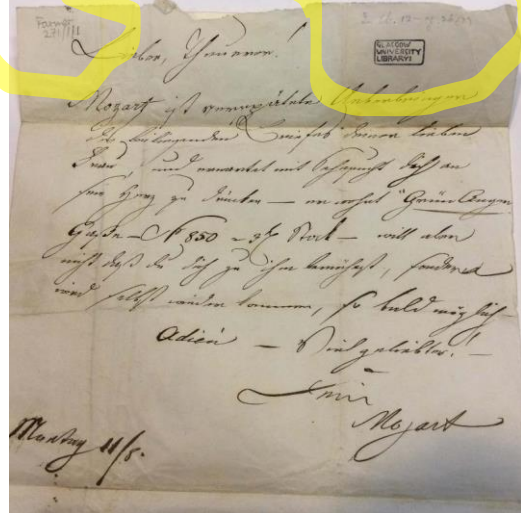 Farmer
271/1/1
GLASGOW
UNIVERSITY
LIBRARY
Lieber, Theurer!
Mozart ist verspätete Ueberbringer
des beiliegenden Briefes Deiner lieben
Frau, und erwartet mit Sehnsucht Dich an
sein Herz zu drücken – er wohnt "Grün Anger
Gasse – N 850 – 3 Stock – will aber
nicht daß du dich zu ihm bemühest, sondern
wird selbst wieder kommen, so bald möglich
Adieu – Vielgeliebter! –
Dein
Mozart
Montag 11/8.